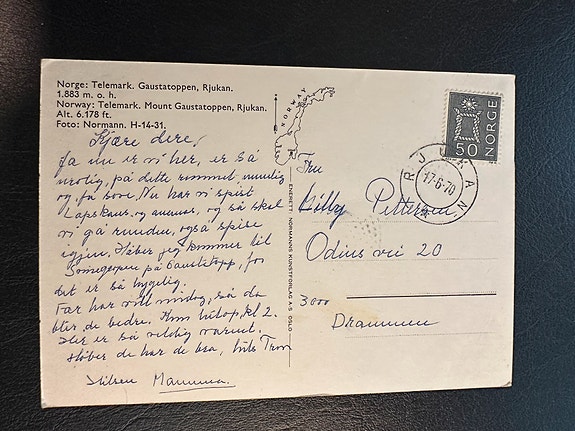 Norge: Telemark. Gaustatoppen, Rjukan.
1.883 m. o. h.
Norway: Telemark. Mount Gaustatoppen, Rjukan.
Alt. 6.178 ft.
Foto: Normann. H-14-31.
NORWAY
ENERETT: NORMANNS KUNSTFORLAG A.S OSLO
50 NORGE
RJUKAN
17-6-70
Kjære dere,
Ja nu er vi her, er så
urolig, på dette rommet
og få sove. Nu har vi spist
Lapskaus, og ananas, og så skal
vi gå runden, også spise
igjen. Håber jeg kommer til
på Gaustatopp, for
det er så hygelig.
Far har vondt så da
blir de bedre. Kom hit kl 2.
Her er så veldig varmt.
Håber de har de bra, hils Tron
Hilsen Mamma.
Fru
Lilly Pettersen
Odins vei 20
3000
Drammen